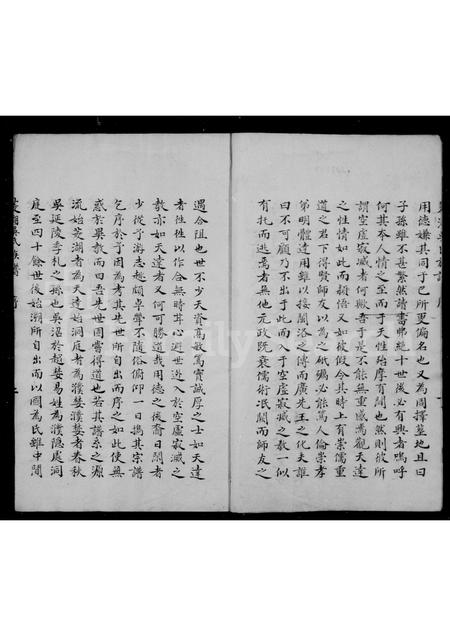 用德嫌其同于己所更偏名也又為周擇墓地且曰
子孫雖不甚繁然讀書弗絕十世後必有興者嗚呼
何其本人情之至而于天性殆摩有閒也然則彼所
謂空虛寂滅者何歟吾于是不能無重感焉觀天達
之性情如此而頓悟又如彼假令其時上有崇儒重
道之君下得賢師友以為之砥礪必能篤人倫崇孝
弟明體達用雖以接關洛之傳而廣先王之化夫誰
曰不可顧乃不出于此而入于空虛寂滅之教一似
有托而逃焉者無他元政既衰儒術汦闕而師友之
遇合阻也世不少天資高敏篤實誠厚之士如天達
者往往以作合無時其心避世逃入於空虛寂滅之
教亦如天達者又何可勝道哉用德之後裔曰閑者
少從予游志趣頗卓犖不隨俗俯仰一日携其宗譜
乞序於予因為考其先世所自出而序之如此使無
惑於異教而曰吾先世固嘗得道也若其譜系之源
流始菱湖者為天達始洞庭者為濮婺濮婺者春秋
吳延陵季札之孫也吳滘於越婺易姓為濮隱處洞
庭至四十餘世後始溯所自出而以國為氏雖中間
菱湖吳氏族譜 序